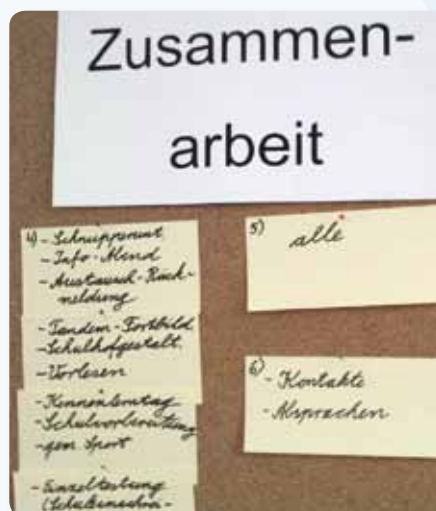 Zusammen-
arbeit
4) - Schnupperunt
- Info-Abend
- Austausch-Rück-
meldung
- Tandem-Fortbild.
- Schulhofgestalt.
- Vorlesen
- Kennenlerntag
- Schulvorbereitung
- gem Sport
- Einzeltestung
5) alle
6) - Kontakte
- Absprachen